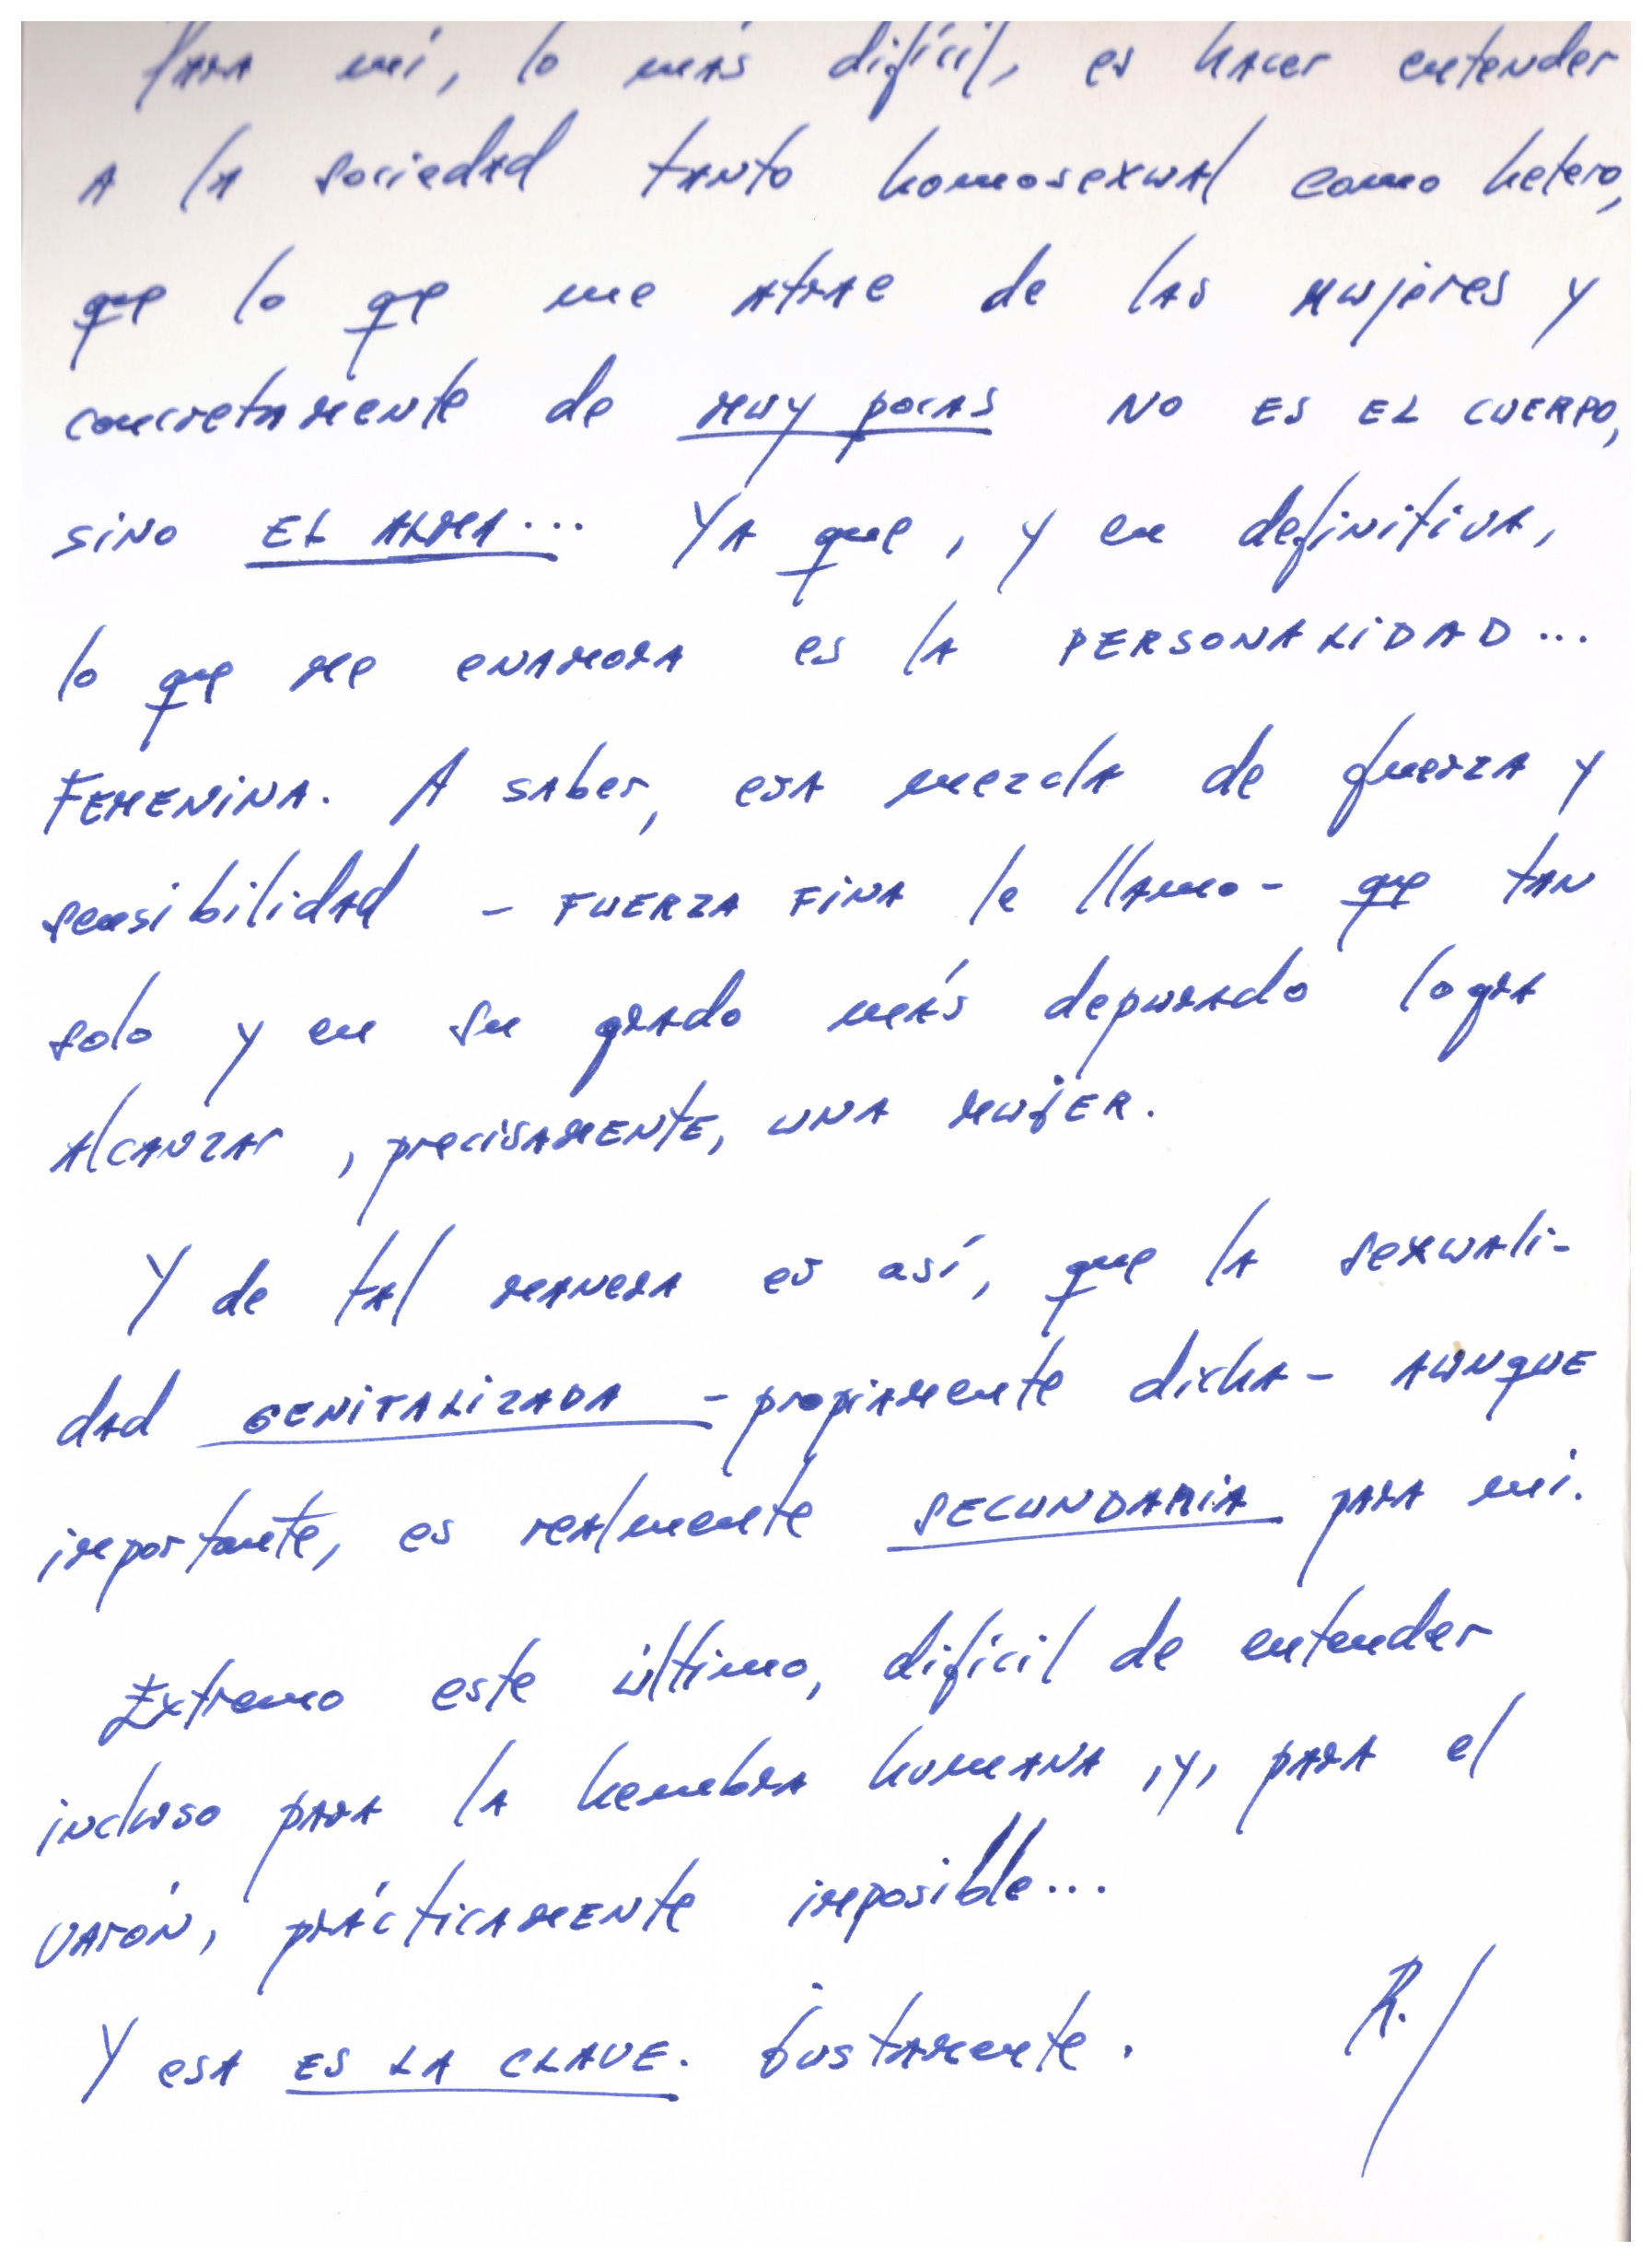 Para mí, lo más difícil, es hacer entender
A la sociedad tanto homosexual como hetero,
que lo que me atrae de las mujeres y
concretamente de muy pocas NO ES EL CUERPO,
sino EL ALMA... Ya que, y en definitiva,
lo que me enamora es la PERSONALIDAD...
FEMENINA. A saber, esa mezcla de fuerza y
sensibilidad - FUERZA FINA le llamo - que tan
solo y en su grado más depurado logra
alcanzar, precisamente, una mujer.
Y de tal manera es así, que la sexuali-
dad GENITALIZADA - propiamente dicha - aunque
importante, es realmente SECUNDARIA para mi.
Extremo este último, difícil de entender
incluso para la hembra humana, y, para el
varón, prácticamente imposible...
Y esa ES LA CLAVE. Justamente.
R.